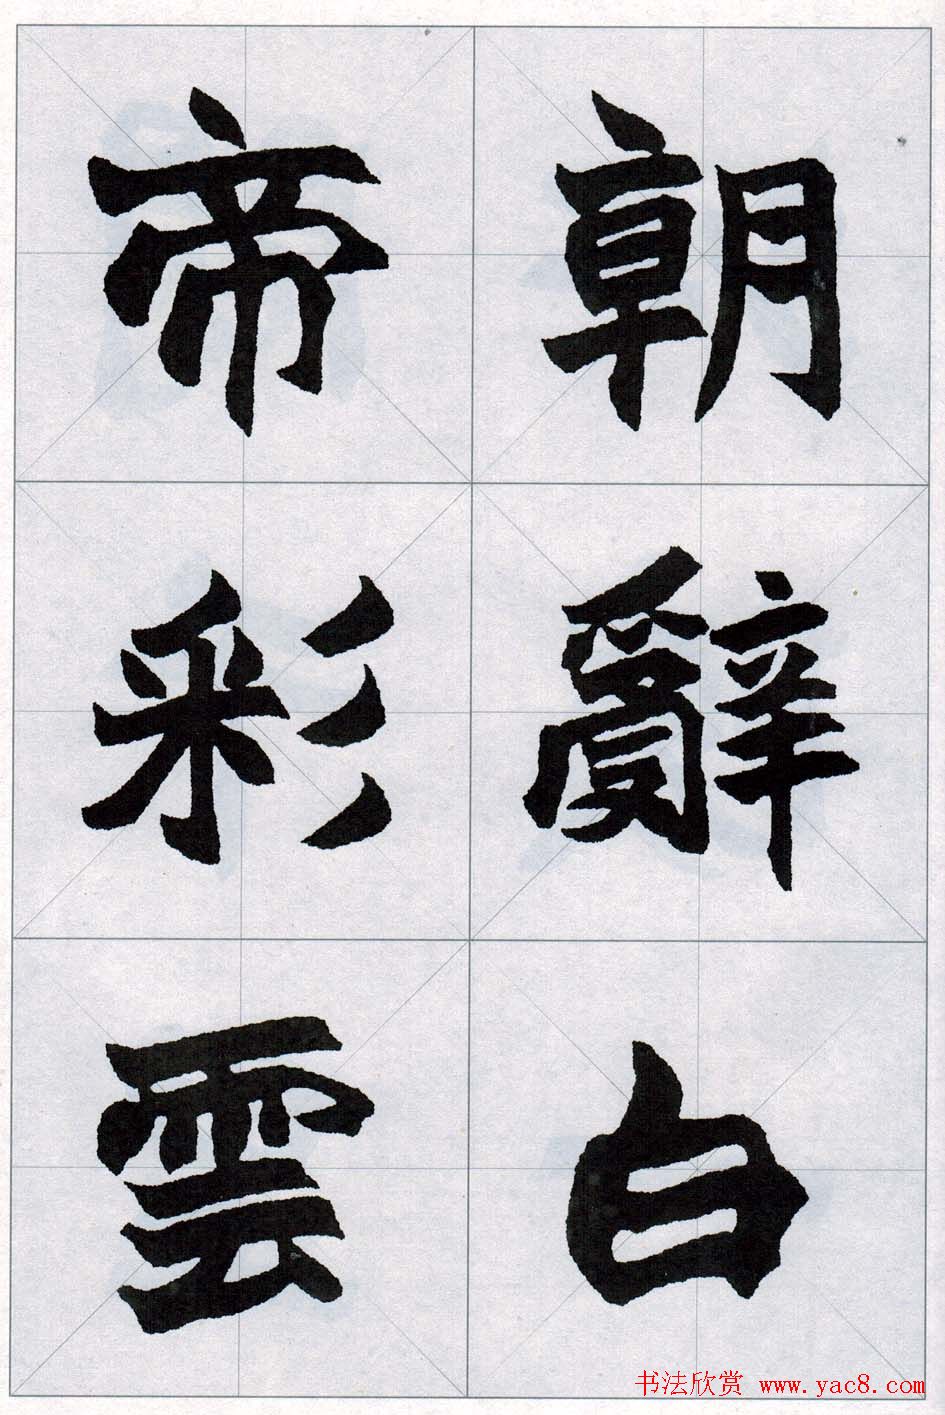 朝辭白
帝彩雲
书法欣赏 www.yac8.com